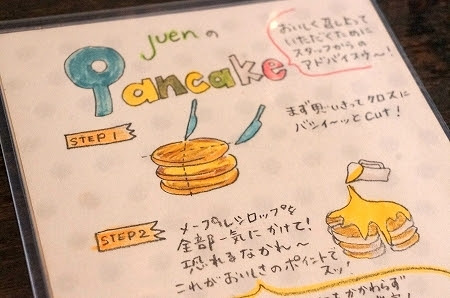 juenの
Pancake
おいしく召し上って
いただくために
スタッフからの
アドバイスゥ〜!
STEP 1
まず思いきってクロスに
バシィ〜ッとcut!
STEP 2
メープルシロップを
全部一気にかけて!
恐れるなかれ〜
これがおいしさのポイントで
スッ!
かかわらず